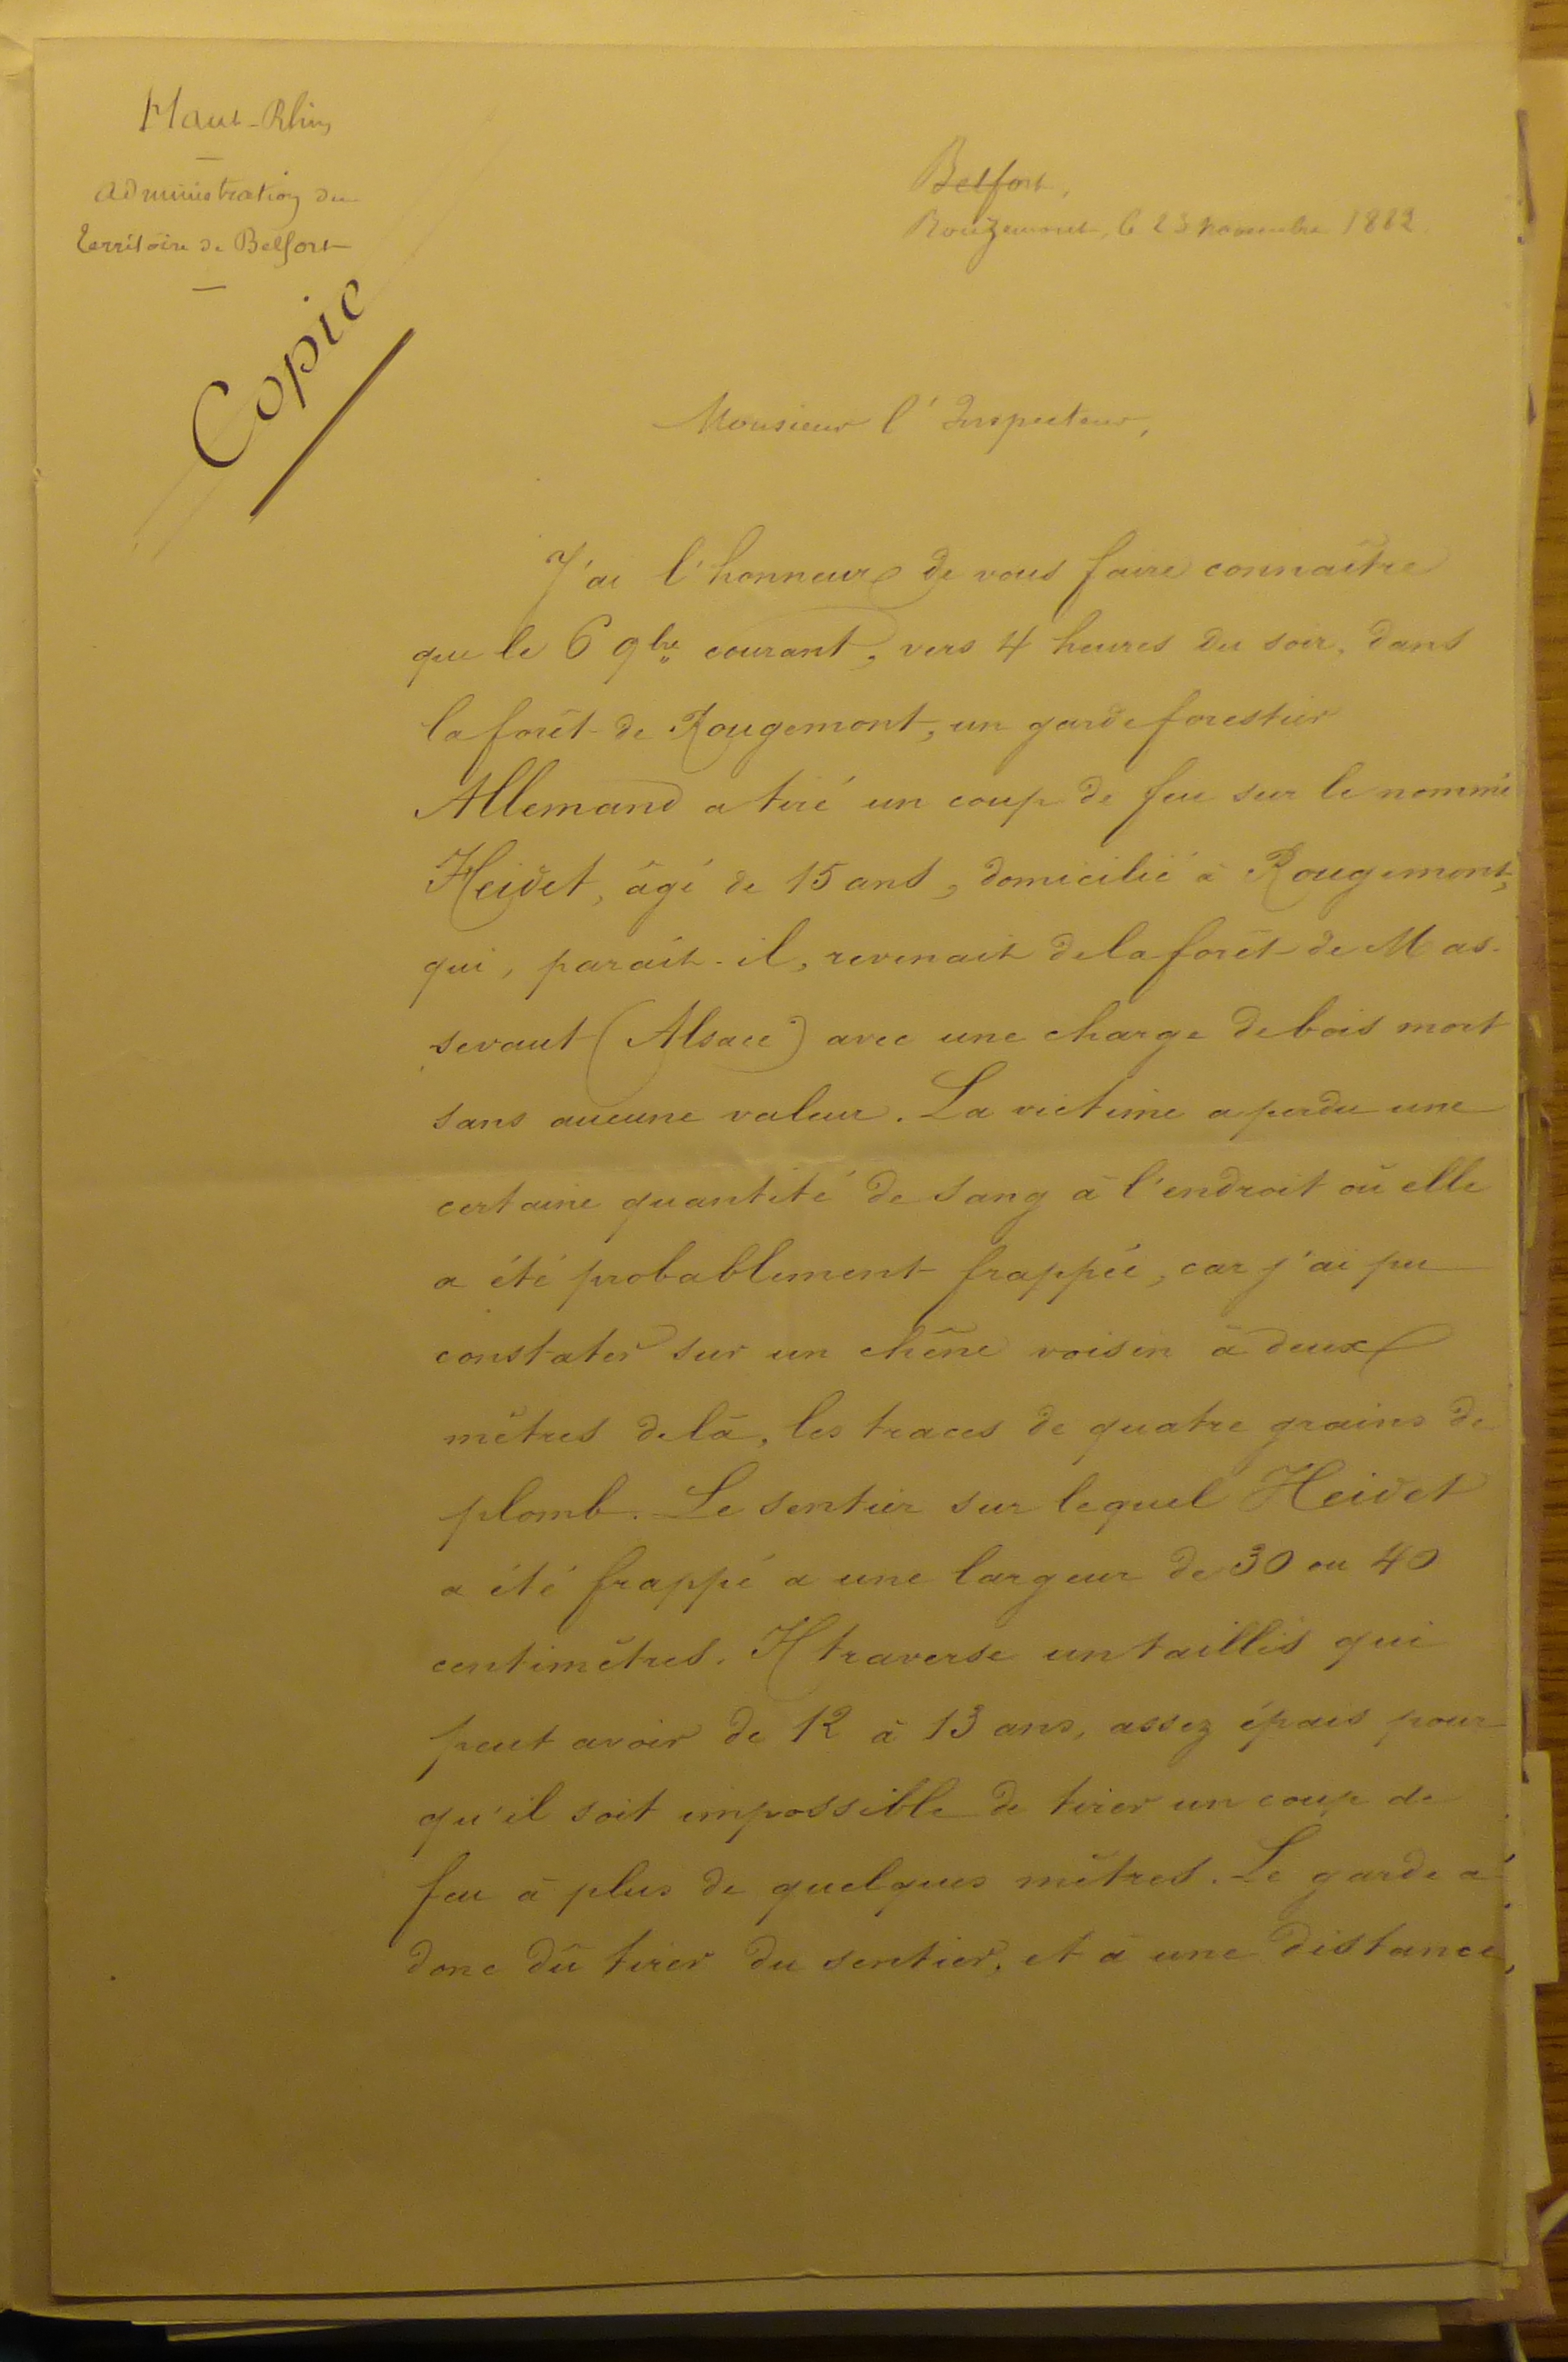 Haut-Rhin
Administration du
Territoire de Belfort
Copie
Belfort,
Rougemont, le 23 novembre 1882.
Monsieur l'Inspecteur,
J'ai l'honneur de vous faire connaître
que le 6 9bre courant, vers 4 heures du soir, dans
la forêt de Rougemont, un garde forestier
Allemand a tiré un coup de feu sur le nommé
Heidet, âgé de 15 ans, domicilié à Rougemont,
qui, parait-il, revenait de la forêt de Mas-
sevaut (Alsace) avec une charge de bois mort
sans aucune valeur. La victime a perdu une
certaine quantité de sang à l'endroit où elle
a été probablement frappée, car j'ai pu
constater sur un chêne voisin à deux
mètres de là, les traces de quatre grains de
plomb. Le sentier sur lequel Heidet
a été frappé a une largeur de 30 ou 40
centimètres. Il traverse un taillis qui
peut avoir de 12 à 13 ans, assez épais pour
qu'il soit impossible de tirer un coup de
feu à plus de quelques mètres. Le garde a
donc dû tirer du sentier, et à une distance